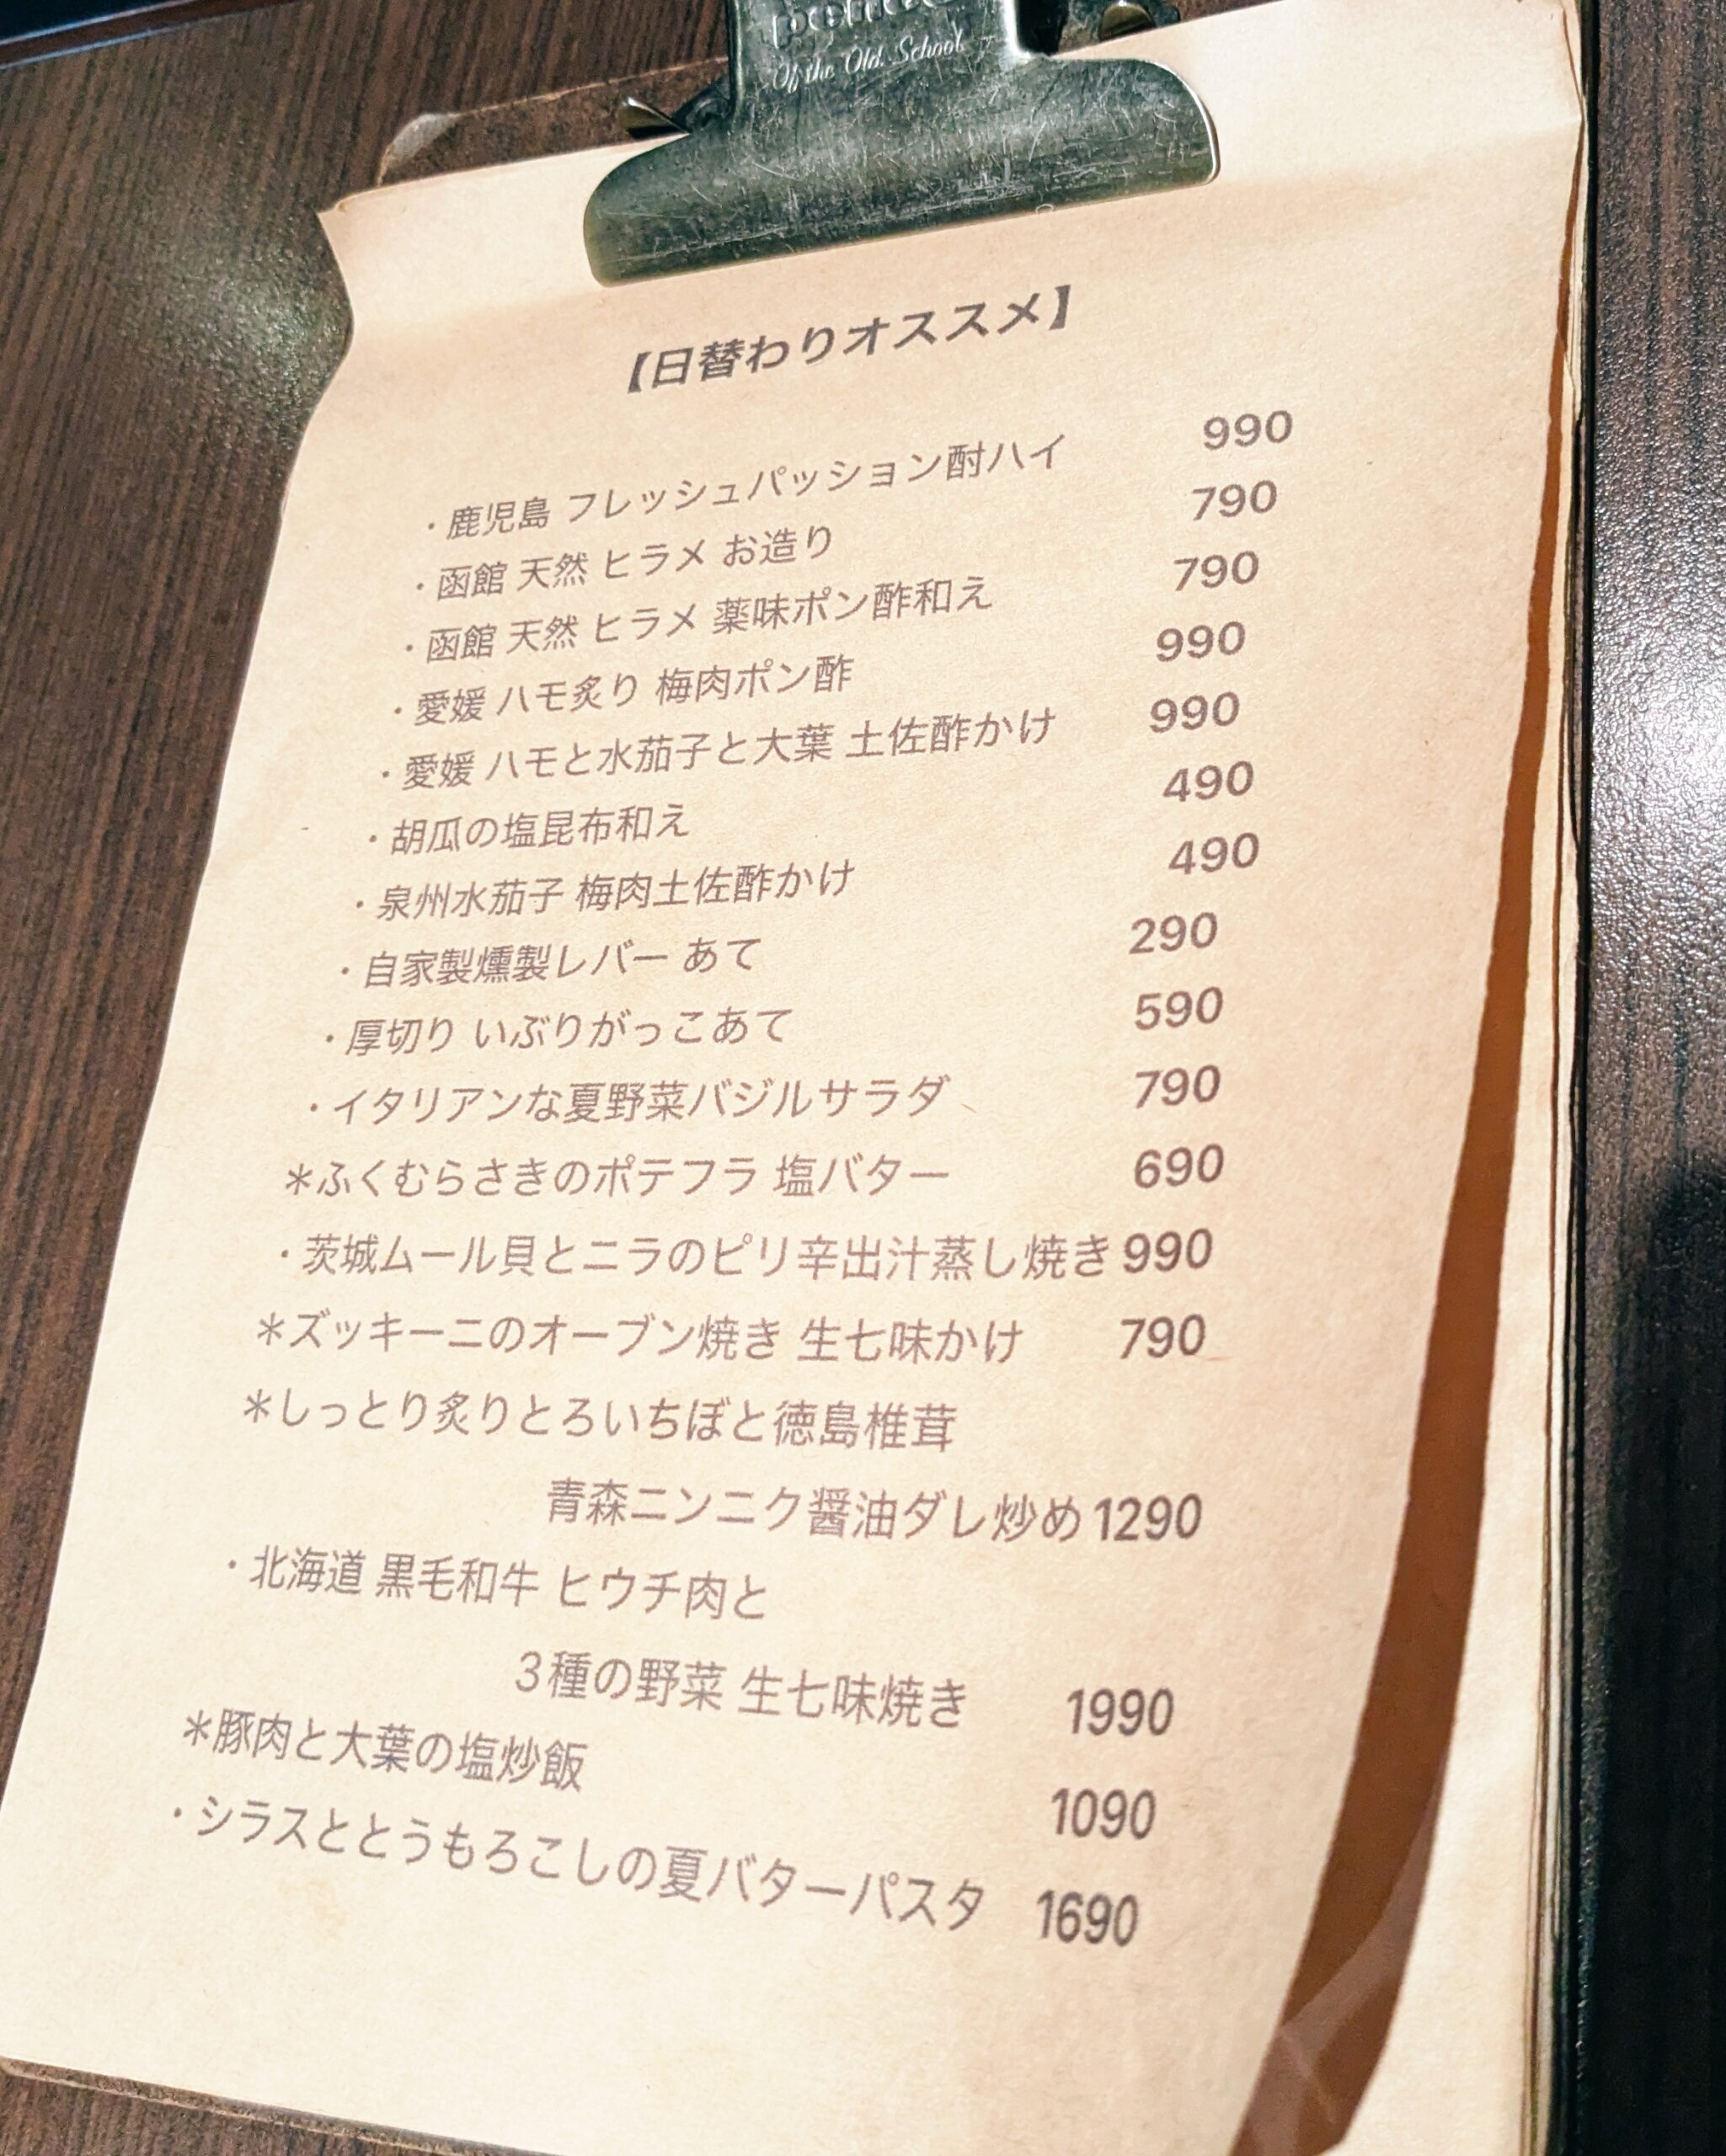 Of the Old School
【日替わりオススメ】
・鹿児島 フレッシュパッション酎ハイ 990
・函館 天然 ヒラメ お造り 790
・函館 天然 ヒラメ 薬味ポン酢和え 790
・愛媛 ハモ炙り 梅肉ポン酢 990
・愛媛 ハモと水茄子と大葉 土佐酢かけ 990
・胡瓜の塩昆布和え 490
・泉州水茄子 梅肉土佐酢かけ 490
・自家製燻製レバー あて 290
・厚切り いぶりがっこあて 590
・イタリアンな夏野菜バジルサラダ 790
＊ふくむらさきのポテフラ 塩バター 690
・茨城ムール貝とニラのピリ辛出汁蒸し焼き 990
＊ズッキーニのオーブン焼き 生七味かけ 790
＊しっとり炙りとろいちぼと徳島椎茸
青森ニンニク醤油ダレ炒め 1290
・北海道 黒毛和牛 ヒウチ肉と
3種の野菜 生七味焼き 1990
＊豚肉と大葉の塩炒飯 1090
・シラスととうもろこしの夏バターパスタ 1690